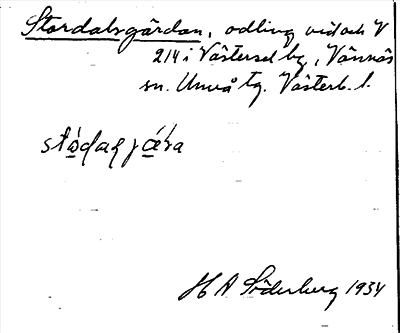 Stordalsgärdan, odling vid och V
214 i Västersel by, Vännäs
sn. Umeå tg. Västerb. l.
H A Söderberg 1934